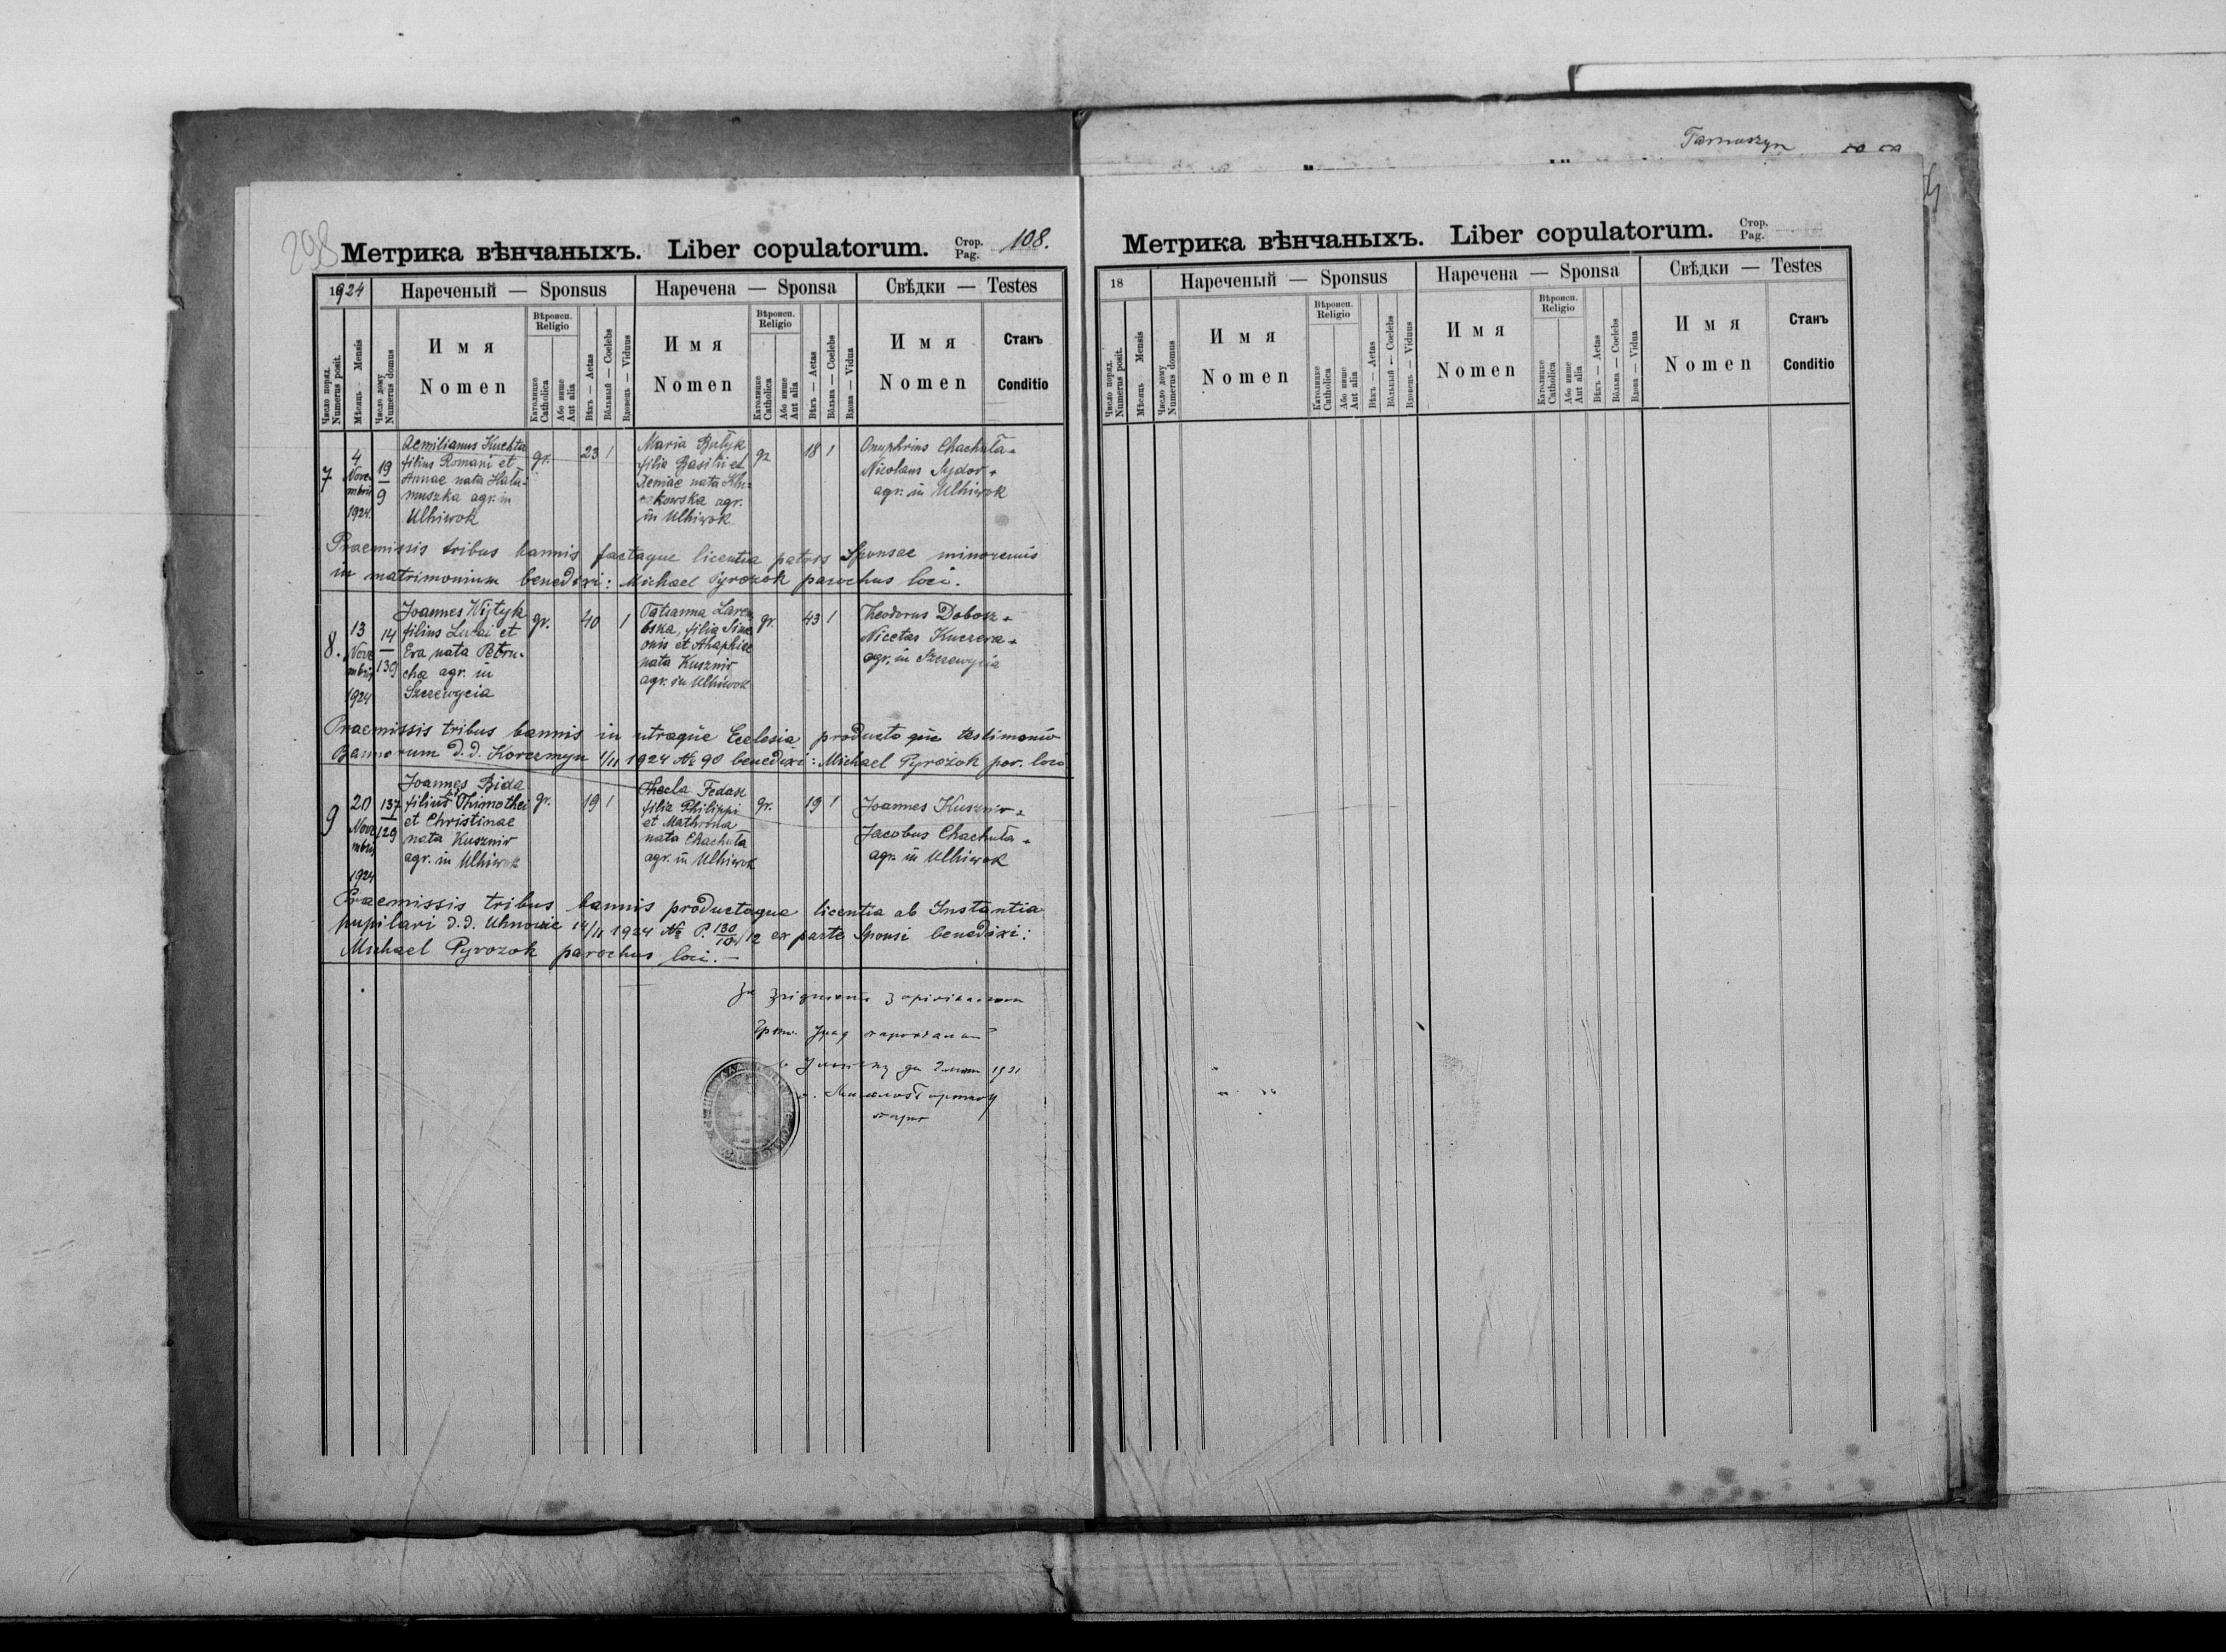 Tarnoszyn
298
Метрика вѣнчаныхъ. Liber copulatorum. Стор. Pag. 108.
1924
Нареченый — Sponsus
Наречена — Sponsa
Свѣдки — Testes
Число поряд. Numerus posit.
Мѣсяць Mensis
Число дому Numerus domus
Имя
Nomen
Вѣроисп. Religio
Католицке Catholica
Або инше Aut alia
Вѣкъ — Aetas
Вôльный — Coelebs
Вдовець — Viduus
Имя
Nomen
Вѣроисп. Religio
Католицке Catholica
Або инше Aut alia
Вѣкъ — Aetas
Вôльна — Coelebs
Вдова — Vidua
Имя
Nomen
Станъ
Conditio
7
4
Nove-
mbris
1924.
19
9
Aemilianus Kuchta
filius Romani et
Annae nata Hala-
muszka agr. in
Ulhiwok
gr.
23
1
Maria Bułyk
filia Basilii et
Xeniae nata
agr.
in Ulhiwok
gr
18
1
Onuphrius Chachuła +
Nicolaus Sydor +
agr. in Ulhiwok
Praemissis tribus bannis factaque licentia patris Sponsae minorenis
in matrimonium benedixi: Michael Pyrożok parochus loci.
8.
13
Nove
mbris
1924
14
139
Joannes Wijtyk
filius Lucai et
Eva nata Petru-
cha agr. in
Szczewycia
gr.
40
1
Tatianna
filia Sime
onis et Ahaphiae
nata Kusznir
agr. in Ulhiwok
gr.
43
1
Theodorus Dobosz +
Nicetas Kuczera +
agr. in Szczewycia
Praemissis tribus bannis in utraque Ecclesia productoque testimonio
Bannorum d.d. Korczmyn 1/11 1924 № 90 benedixi: Michael Pyrożok par. loci
9
20
Nove
mbris
1924
137
129
Joannes Bida
filius Thimothei
et Christinae
nata Kusznir
agr. in Ulhiwok
gr.
19
1
Thecla Fedak
filia Philippi
et Mathrona
nata Chachuła
agr. in Ulhiwok
gr.
19
1
Joannes Kusznir +
Jacobus Chachuła +
agr. in Ulhiwok
Praemissis tribus bannis productaque licentia ab Instantia
pupilari d.d. Uhnowie 14/11 1924 № P. 130/12 ex parte Sponsi benedixi:
Michael Pyrożok parochus loci. —
За згідність з оригіналом
Уряд парохіальний
1931
Метрика вѣнчаныхъ. Liber copulatorum. Стор. Pag.
18
Нареченый — Sponsus
Наречена — Sponsa
Свѣдки — Testes
Число поряд. Numerus posit.
Мѣсяць Mensis
Число дому Numerus domus
Имя
Nomen
Вѣроисп. Religio
Католицке Catholica
Або инше Aut alia
Вѣкъ — Aetas
Вôльный — Coelebs
Вдовець — Viduus
Имя
Nomen
Вѣроисп. Religio
Католицке Catholica
Або инше Aut alia
Вѣкъ — Aetas
Вôльна — Coelebs
Вдова — Vidua
Имя
Nomen
Станъ
Conditio